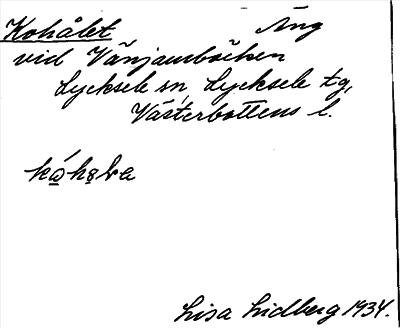 Kohålet Äng
vid Vänjaurbäcken
Lycksele sn, Lycksele tg,
Västerbottens l.
Lisa Lidberg 1934.